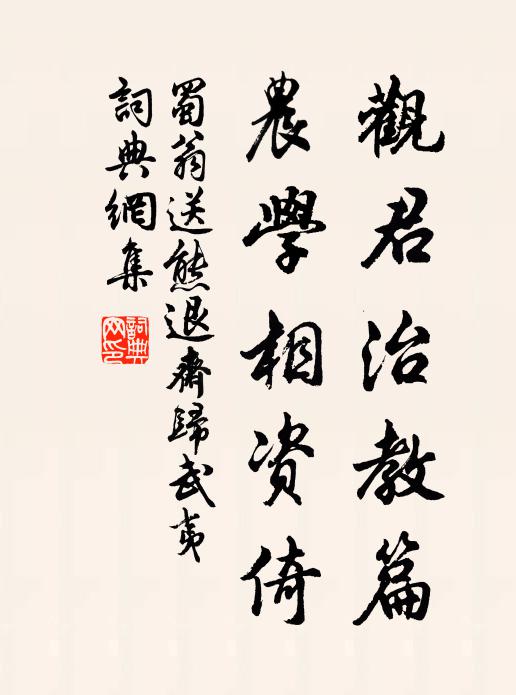 觀君治教篇
農學相資倚
蜀翁送熊退齋歸武夷
詞典網集
詞典網印